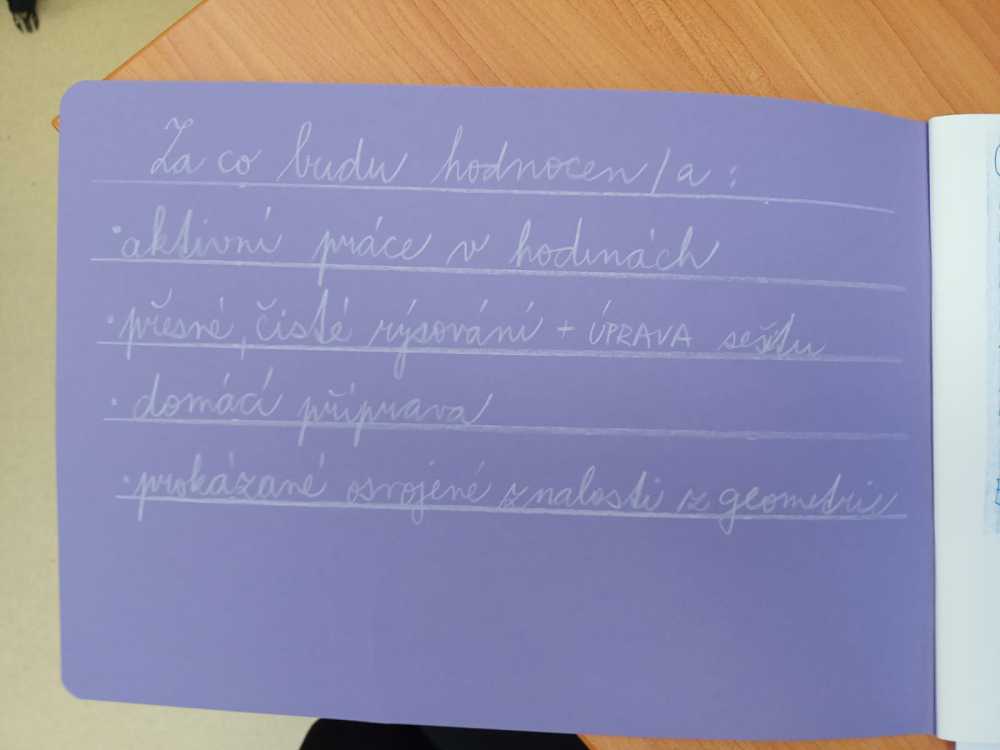 Za co budu hodnocen/a:
• aktivní práce v hodinách
• přesné, čisté rýsování + ÚPRAVA sešitu
• domácí příprava
• prokázané osvojené znalosti z geometrie